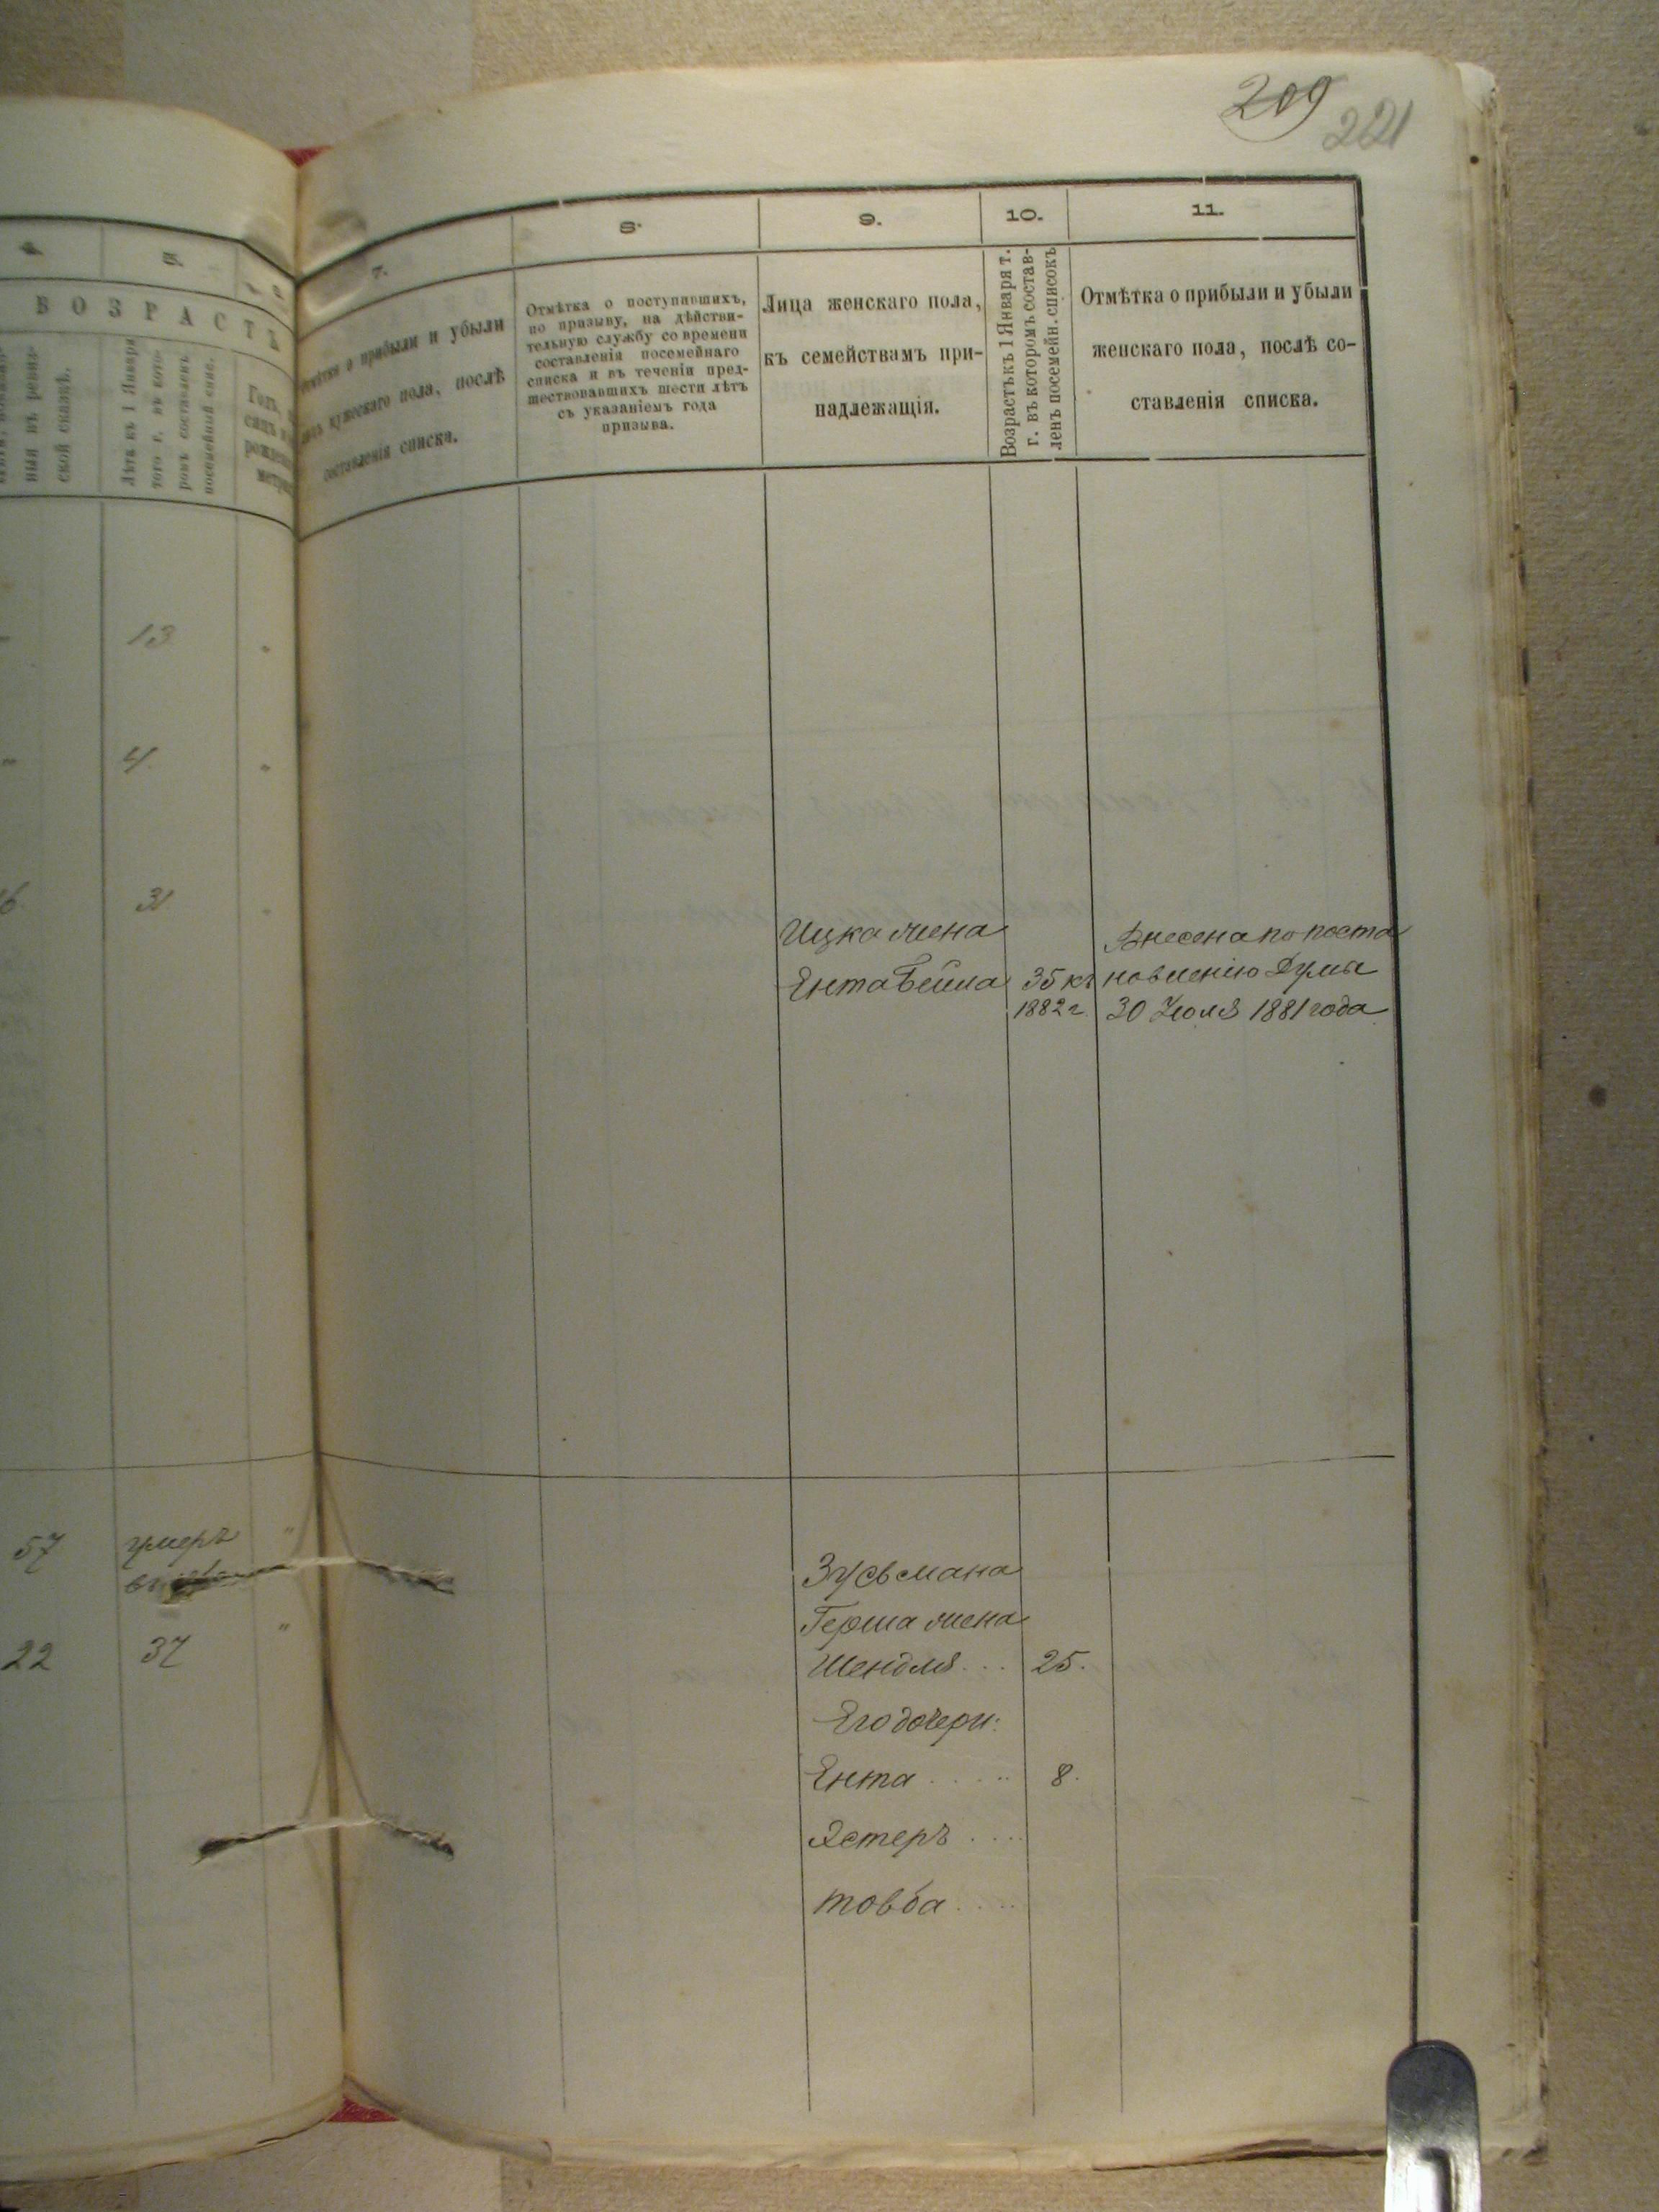 209
221
4.
5.
ВОЗРАСТЪ
Лѣтъ къ 1 Января
того г. въ кото-
ромъ составленъ
посемейный спис.
ской сказкѣ.
13
4
31
57
умеръ
22
37
7.
о прибыли и убыли
мужескаго пола, послѣ
составленія списка.
8.
Отмѣтка о поступившихъ,
по призыву, на дѣйстви-
тельную службу со времени
составленія посемейнаго
списка и въ теченіи пред-
шествовавшихъ шести лѣтъ
съ указаніемъ года
призыва.
9.
Лица женскаго пола,
къ семействамъ при-
надлежащія.
10.
Возрастъ къ 1 Января т.
г. въ которомъ состав-
ленъ посемейн. списокъ
11.
Отмѣтка о прибыли и убыли
женскаго пола, послѣ со-
ставленія списка.
Ицка жена
Ента Бейла 35 къ
1882 г.
Внесена по поста
новленію Думы
30 Іюля 1881 года
Зусьмана
Герша жена
Шендля... 25.
Его дочери:
Ента..... 8.
Эстеръ....
товба....